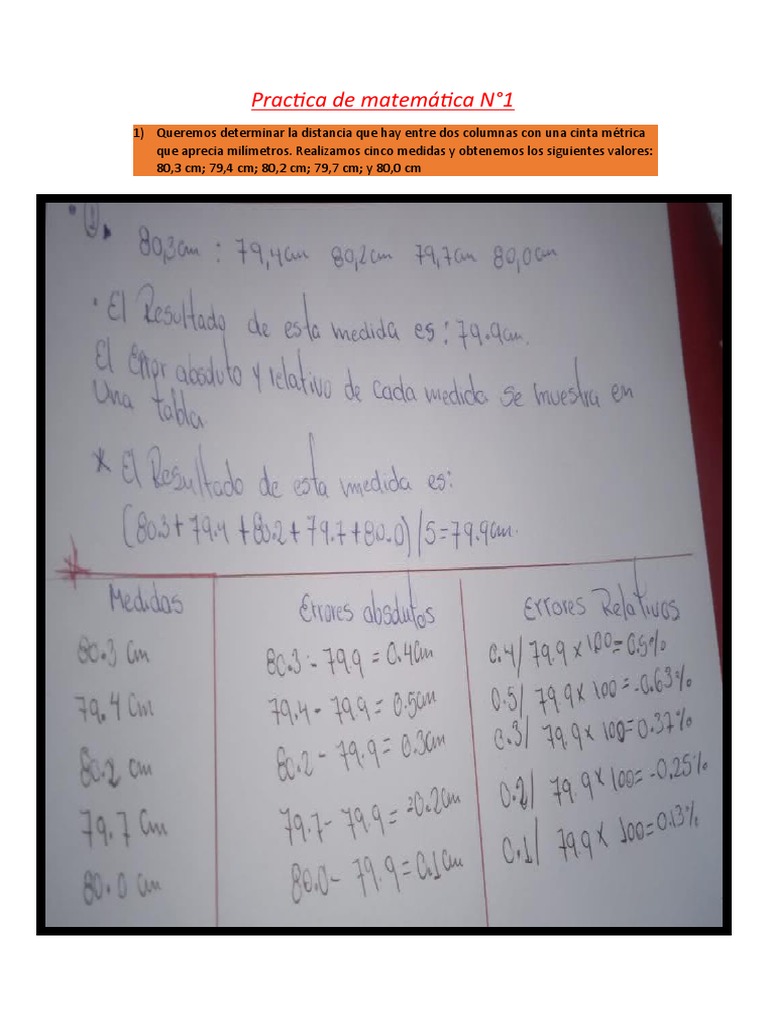 Practica de matemática N°1
1) Queremos determinar la distancia que hay entre dos columnas con una cinta métrica
que aprecia milímetros. Realizamos cinco medidas y obtenemos los siguientes valores:
80,3 cm; 79,4 cm; 80,2 cm; 79,7 cm; y 80,0 cm
1.
80,3cm : 79,4cm 80,2cm 79,7cm 80,0cm
· El Resultado de esta medida es: 79.9cm.
El Error absoluto y relativo de cada medida se muestra en
Una tabla.
* El Resultado de esta medida es:
(80.3+79.4+80.2+79.7+80.0)/5=79.9cm.
Medidas Errores absolutos Errores Relativos
80.3 cm 80.3 - 79.9 = 0.4cm 0.4/79.9 x 100=0.5%
79.4 cm 79.4 - 79.9 = 0.5cm 0.5/79.9 x 100=-0.63%
80.2 cm 80.2 - 79.9 = 0.3cm 0.3/79.9 x 100=0.37%
79.7 cm 79.7 - 79.9 = -0.2cm 0.2/79.9 x 100=-0.25%
80.0 cm 80.0 - 79.9 = 0.1cm 0.1/79.9 x 100=0.13%